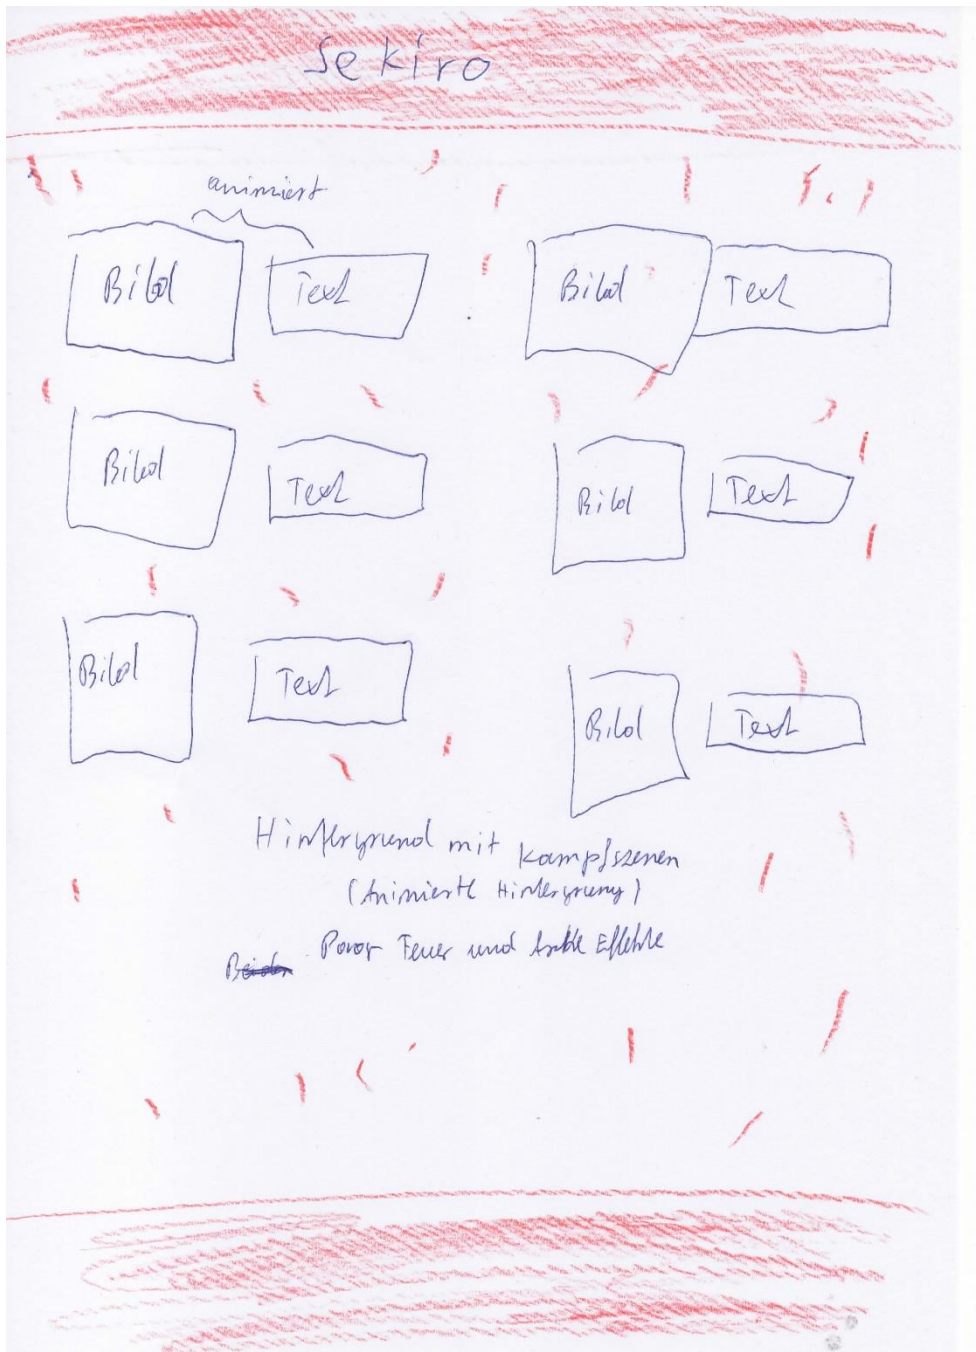 Sekiro
animiert
Bild Text Bild Text
Bild Text Bild Text
Bild Text Bild Text
Hintergrund mit Kampfszenen
(Animierte
Feuer und Effekte